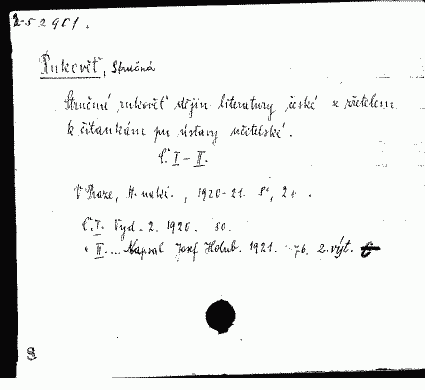 252901.
Rukověť, Stručná
Stručná rukověť dějin literatury české se zřetelem
k čítankám pro ústavy učitelské.
Č. I-II.
V Praze, nákl., 1920-21. 8°, 2 .
Č. I. Vyd. 2. 1920. 80.
" II.... Napsal Josef Holub. 1921. 76. 2. výt.